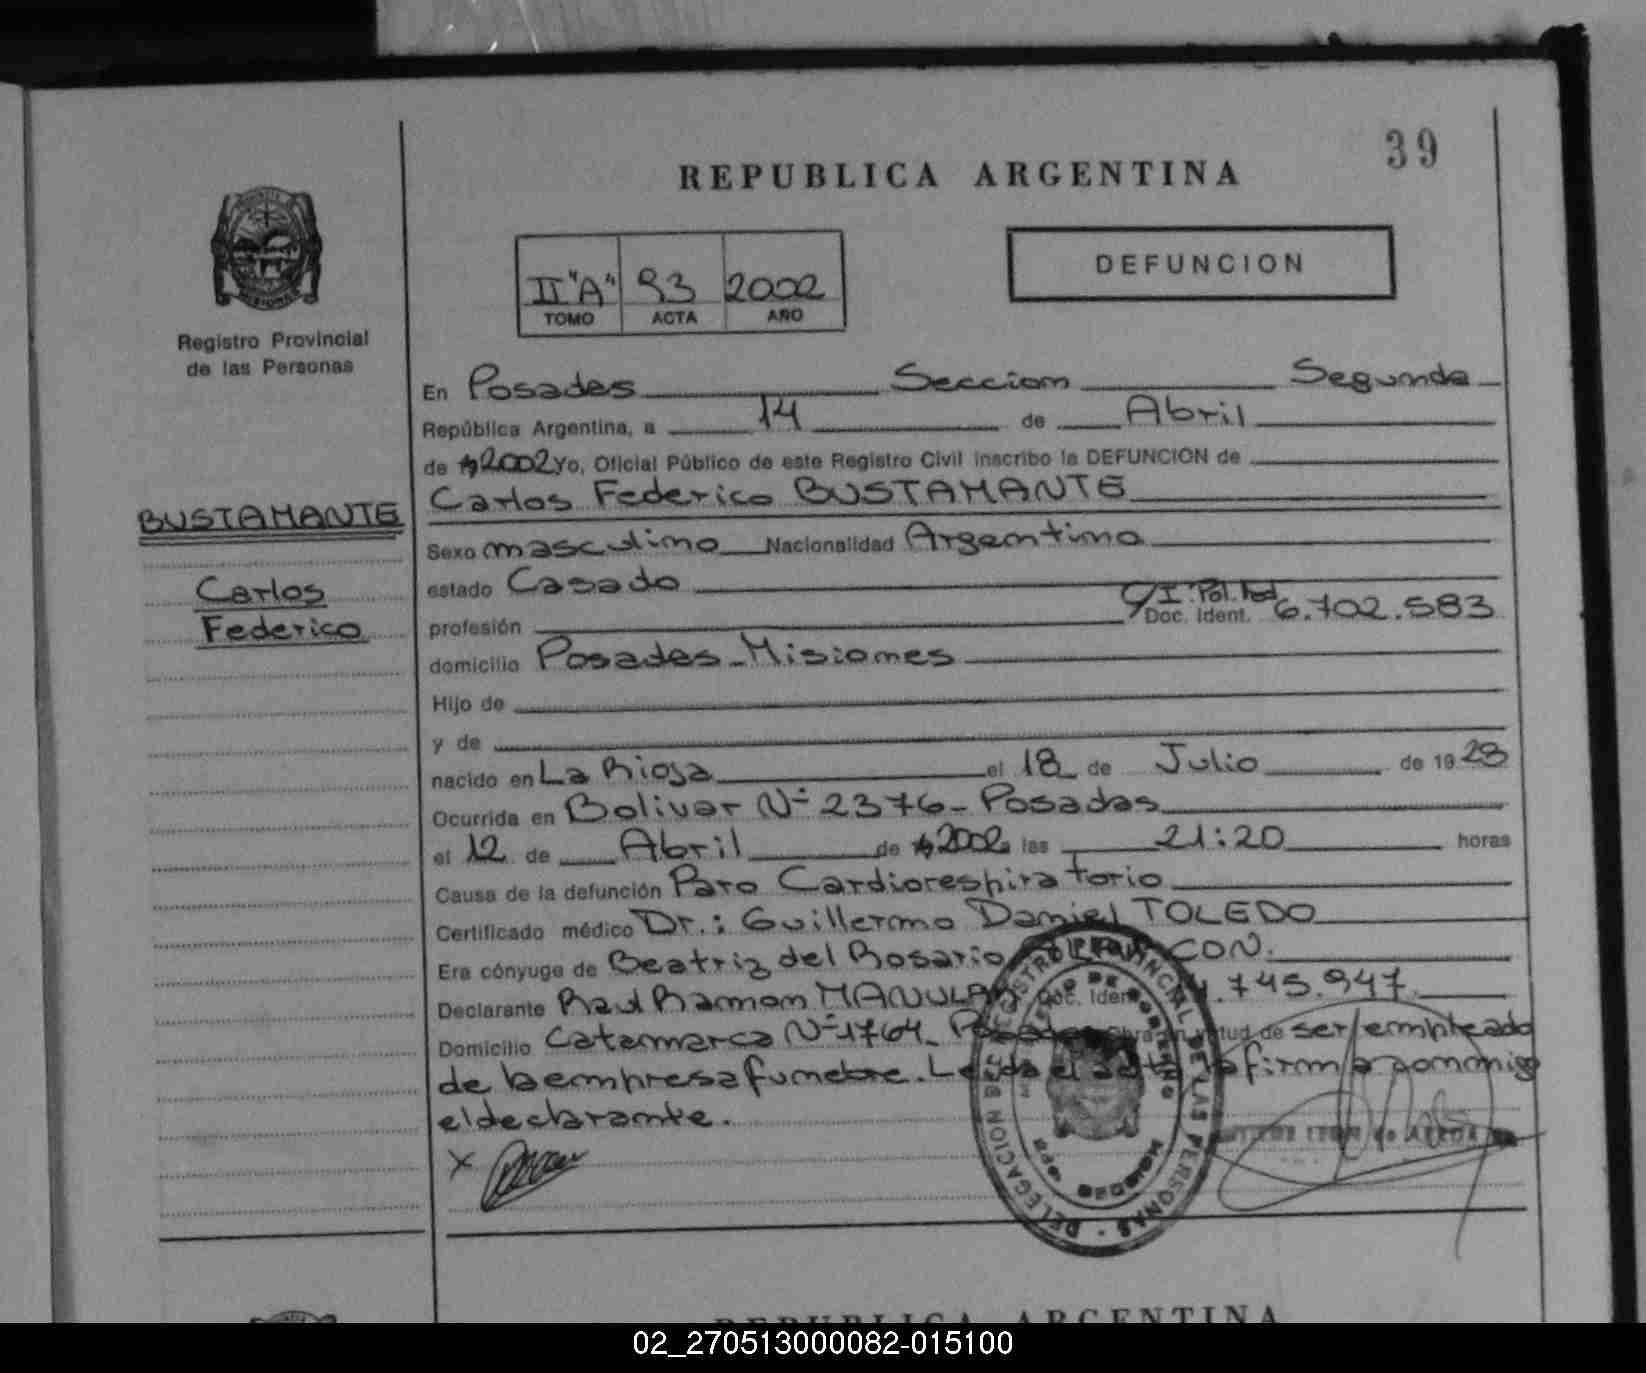 39
REPUBLICA ARGENTINA
DEFUNCION
II "A" 93 2002
TOMO ACTA AÑO
Registro Provincial
de las Personas
En Posadas Seccion Segunda
República Argentina, a 14 de Abril
de 2002 Yo, Oficial Público de este Registro Civil inscribo la DEFUNCION de
Carlos Federico BUSTAMANTE
BUSTAMANTE
Carlos
Federico
Sexo masculino Nacionalidad Argentino
estado Casado
profesión C/I. Pol. Fed. Doc. Ident. 6.702.583
domicilio Posadas - Misiones
Hijo de
y de
nacido en La Rioja el 18 de Julio de 19 28
Ocurrida en Bolivar Nº 2376 - Posadas
el 12 de Abril de 2002 las 21:20 horas
Causa de la defunción Paro Cardiorespiratorio
Certificado médico Dr.: Guillermo Daniel TOLEDO
Era cónyuge de Beatriz del Rosario
Declarante Raul Ramon Doc. Ident. .745.947
Domicilio Catamarca Nº 1764 - Posadas Obra en virtud de ser empleado
de la empresa funebre. Leida el acta la firma conmigo
el declarante.
X
REGISTRO PROVINCIAL DE LAS PERSONAS - DELEGACION
REPUBLICA ARGENTINA
02_270513000082-015100